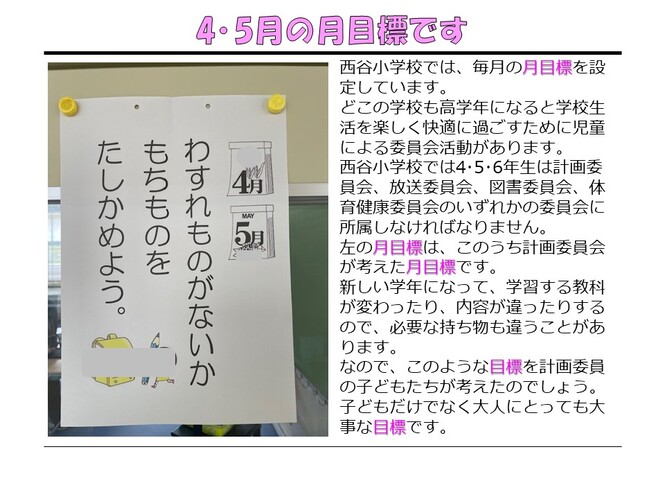 4・5月の月目標です
わすれものがないか
もちものを
たしかめよう。
4月
MAY
5月
西谷小学校では、毎月の月目標を設
定しています。
どこの学校も高学年になると学校生
活を楽しく快適に過ごすために児童
による委員会活動があります。
西谷小学校では4・5・6年生は計画委
員会、放送委員会、図書委員会、体
育健康委員会のいずれかの委員会に
所属しなければなりません。
左の月目標は、このうち計画委員会
が考えた月目標です。
新しい学年になって、学習する教科
が変わったり、内容が違ったりする
ので、必要な持ち物も違うことがあ
ります。
なので、このような目標を計画委員
の子どもたちが考えたのでしょう。
子どもだけでなく大人にとっても大
事な目標です。